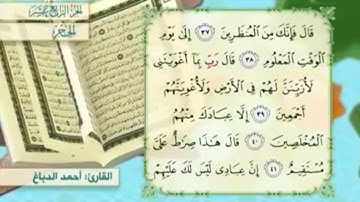 الجزء الرابع عشر
الحجر
قَالَ فَإِنَّكَ مِنَ الْمُنظَرِينَ ٣٧ إِلَىٰ يَوْمِ
الْوَقْتِ الْمَعْلُومِ ٣٨ قَالَ رَبِّ بِمَا أَغْوَيْتَنِي
لَأُزَيِّنَنَّ لَهُمْ فِي الْأَرْضِ وَلَأُغْوِيَنَّهُمْ
أَجْمَعِينَ ٣٩ إِلَّا عِبَادَكَ مِنْهُمُ
الْمُخْلَصِينَ ٤٠ قَالَ هَٰذَا صِرَٰطٌ عَلَيَّ
مُسْتَقِيمٌ ٤١ إِنَّ عِبَادِي لَيْسَ لَكَ عَلَيْهِمْ
القارئ: أحمد الدباغ